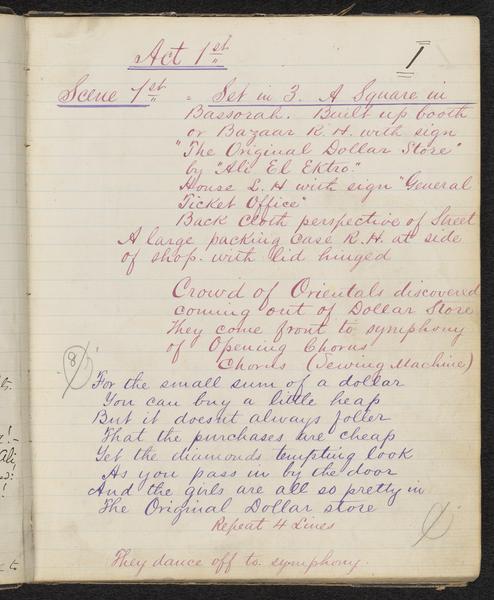 Act 1st
1
Scene 1st = Set in 3. A Square in
Bassorah. Built up booth
or Bazaar R.H. with sign
"The Original Dollar Store"
by "Ali El Ektro."
House L.H with sign "General
Ticket Office"
Back Cloth perspective of Street
A large packing Case R.H. at side
of shop. with lid hinged
Crowd of Orientals discovered
coming out of Dollar Store
They come front to symphony
of Opening Chorus
Chorus (Sewing Machine)
8
For the small sum of a dollar
You can buy a little heap
But it doesnt always foller
That the purchases are cheap
Yet the diamonds tempting look
As you pass in by the door
And the girls are all so pretty in
The Original Dollar store
Repeat 4 Lines
They dance off to symphony.